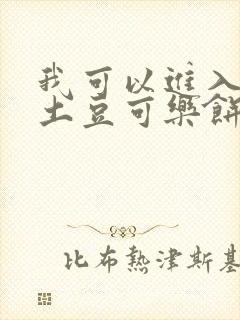 我可以進入
土豆可樂餅
比布熱津斯基